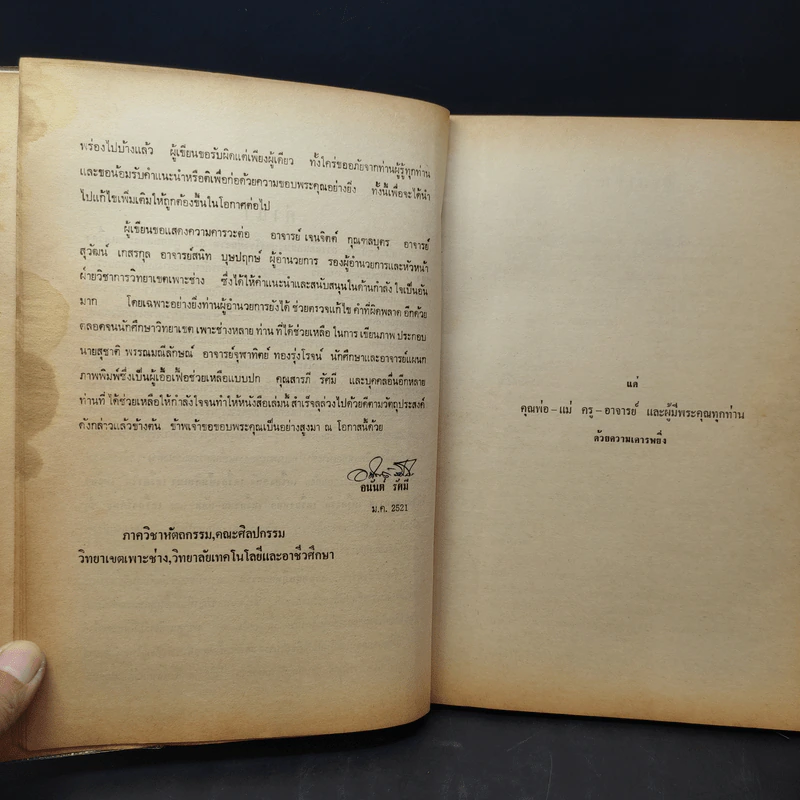 พร่องไปบ้างแล้ว ผู้เขียนขอรับผิดแต่เพียงผู้เดียว ทั้งใคร่ขออภัยจากท่านผู้รู้ทุกท่าน
และขอน้อมรับคำแนะนำหรือติเพื่อก่อด้วยความขอบพระคุณอย่างยิ่ง ทั้งนี้เพื่อจะได้นำ
ไปแก้ไขเพิ่มเติมให้ถูกต้องขึ้นในโอกาสต่อไป
ผู้เขียนขอแสดงความคารวะต่อ อาจารย์ เจนจิตต์ กุณฑลบุตร อาจารย์
สุวัฒน์ เกสรกุล อาจารย์สนิท บุษปฤกษ์ ผู้อำนวยการ รองผู้อำนวยการและหัวหน้า
ฝ่ายวิชาการวิทยาเขตเพาะช่าง ซึ่งได้ให้คำแนะนำและสนับสนุนในด้านกำลัง ใจเป็นอัน
มาก โดยเฉพาะอย่างยิ่งท่านผู้อำนวยการยังได้ ช่วยตรวจแก้ไข คำที่ผิดพลาด อีกด้วย
ตลอดจนนักศึกษาวิทยาเขต เพาะช่างหลาย ท่าน ที่ได้ช่วยเหลือ ในการ เขียนภาพ ประกอบ
นายสุชาติ พรรณมณีลักษณ์ อาจารย์จุฬาทิตย์ ทองรุ่งโรจน์ นักศึกษาและอาจารย์แผนก
ภาพพิมพ์ซึ่งเป็นผู้เอื้อเฟื้อช่วยเหลือแบบปก คุณสารภี รัศมี และบุคคลอื่นอีกหลาย
ท่านที่ ได้ช่วยเหลือให้กำลังใจจนทำให้หนังสือเล่มนี้ สำเร็จลุล่วงไปด้วยดีตามวัตถุประสงค์
ดังกล่าวแล้วข้างต้น ข้าพเจ้าขอขอบพระคุณเป็นอย่างสูงมา ณ โอกาสนี้ด้วย
อนันต์ รัศมี
ม.ค. 2521
ภาควิชาหัตถกรรม,คณะศิลปกรรม
วิทยาเขตเพาะช่าง,วิทยาลัยเทคโนโลยีและอาชีวศึกษา
แด่
คุณพ่อ – แม่ ครู – อาจารย์ และผู้มีพระคุณทุกท่าน
ด้วยความเคารพยิ่ง